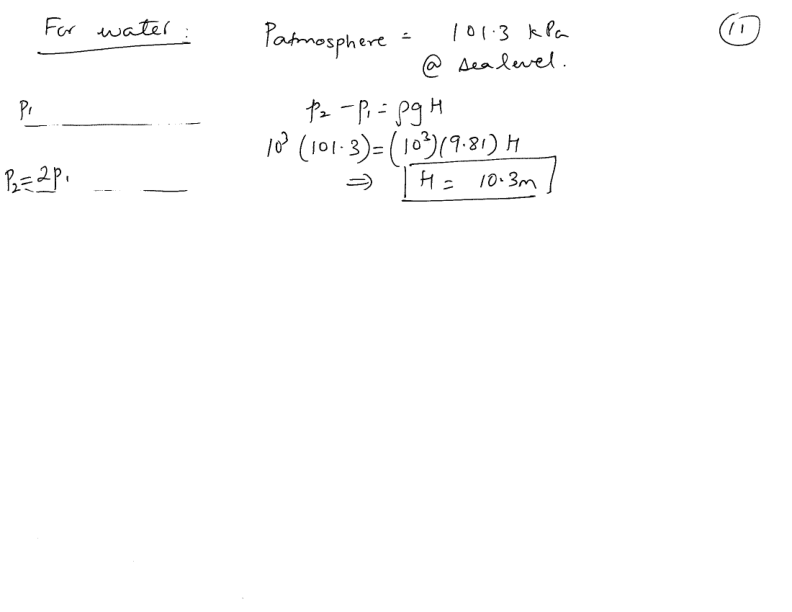 For water:
Patmosphere = 101.3 kPa
@ sea level.
11
P1
p2 - p1 = ρgH
10³ (101.3) = (10³)(9.81) H
P2 = 2p1
⇒ H = 10.3m